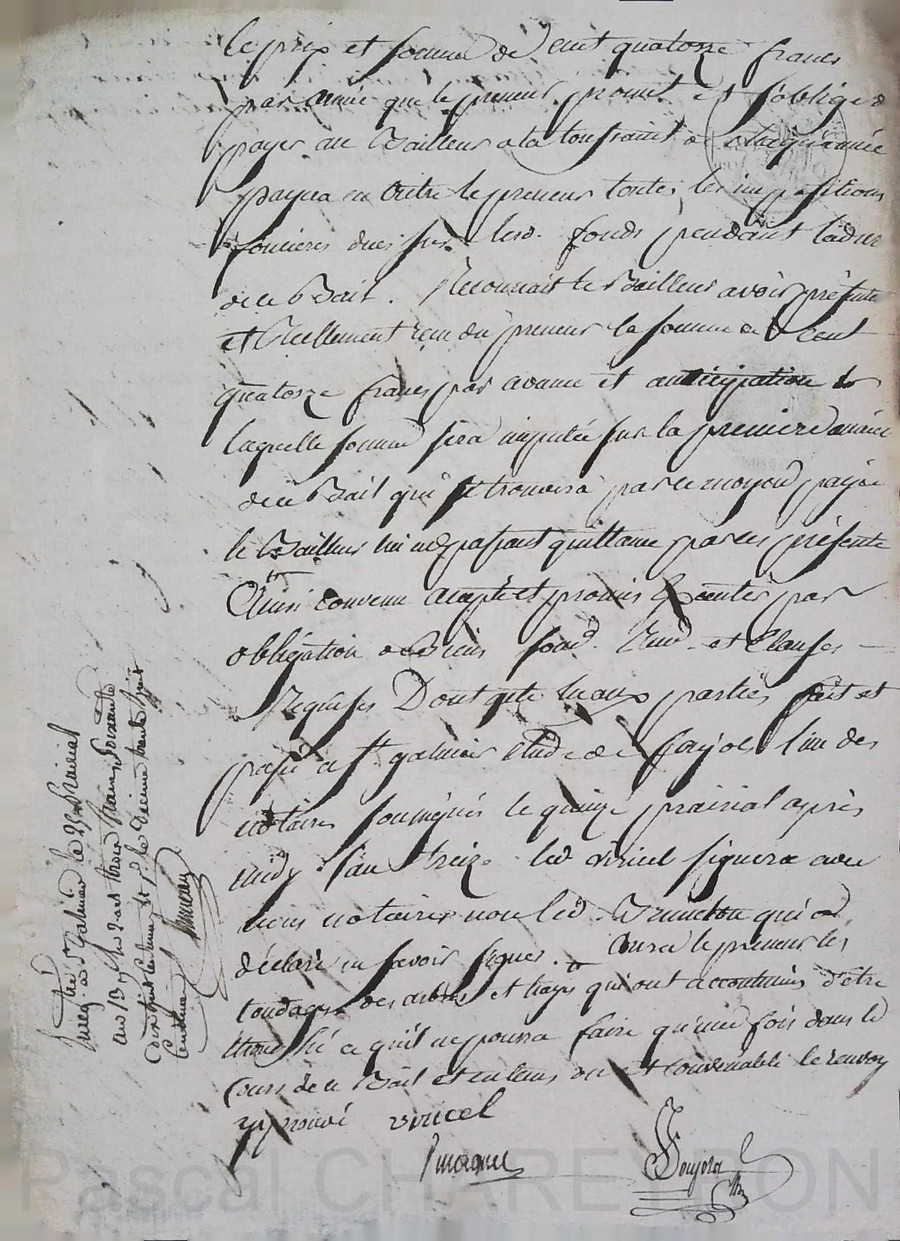 le prix et somme de cent quatorze francs
par année que le preneur promet et s'oblige de
payer au Bailleur a la toussaint de chaque année
payera en outre le preneur toutes les impositions
foncieres dues sur lesd. fonds pendant la durée
de ce Bail. Reconnait le Bailleur avoir présente
et Réellement reçu du preneur la somme de cent
quatorze francs par avance et anticipation
laquelle somme sera imputée sur la premiere année
de ce Bail qui se trouvera par ce moyen payée
le Bailleur lui en passant quittance par ces présente
Ainsi convenu accepté et promis Exécuter par
obligation de Biens soud. Rend. et Clauses
Requises Dont acte lu aux parties fait et
passé a St galmier étude de foujols l'un des
notaires soussignés le quinze prairial après
midy l'an treize led. viricel signera avec
nous notaires non led. Brunebon qui a
déclaré ne savoir signer. aura le preneur les
tondages des arbres et hayes qui ont accoutumés d'être
ce qu'il ne pourra faire qu'une fois dans le
cours de ce Bail et en tems du et convenable le renvoy
approuvé viricel
foujols
Enreg. a St Galmier le 25 prairial
an 13 francs soixante
centimes